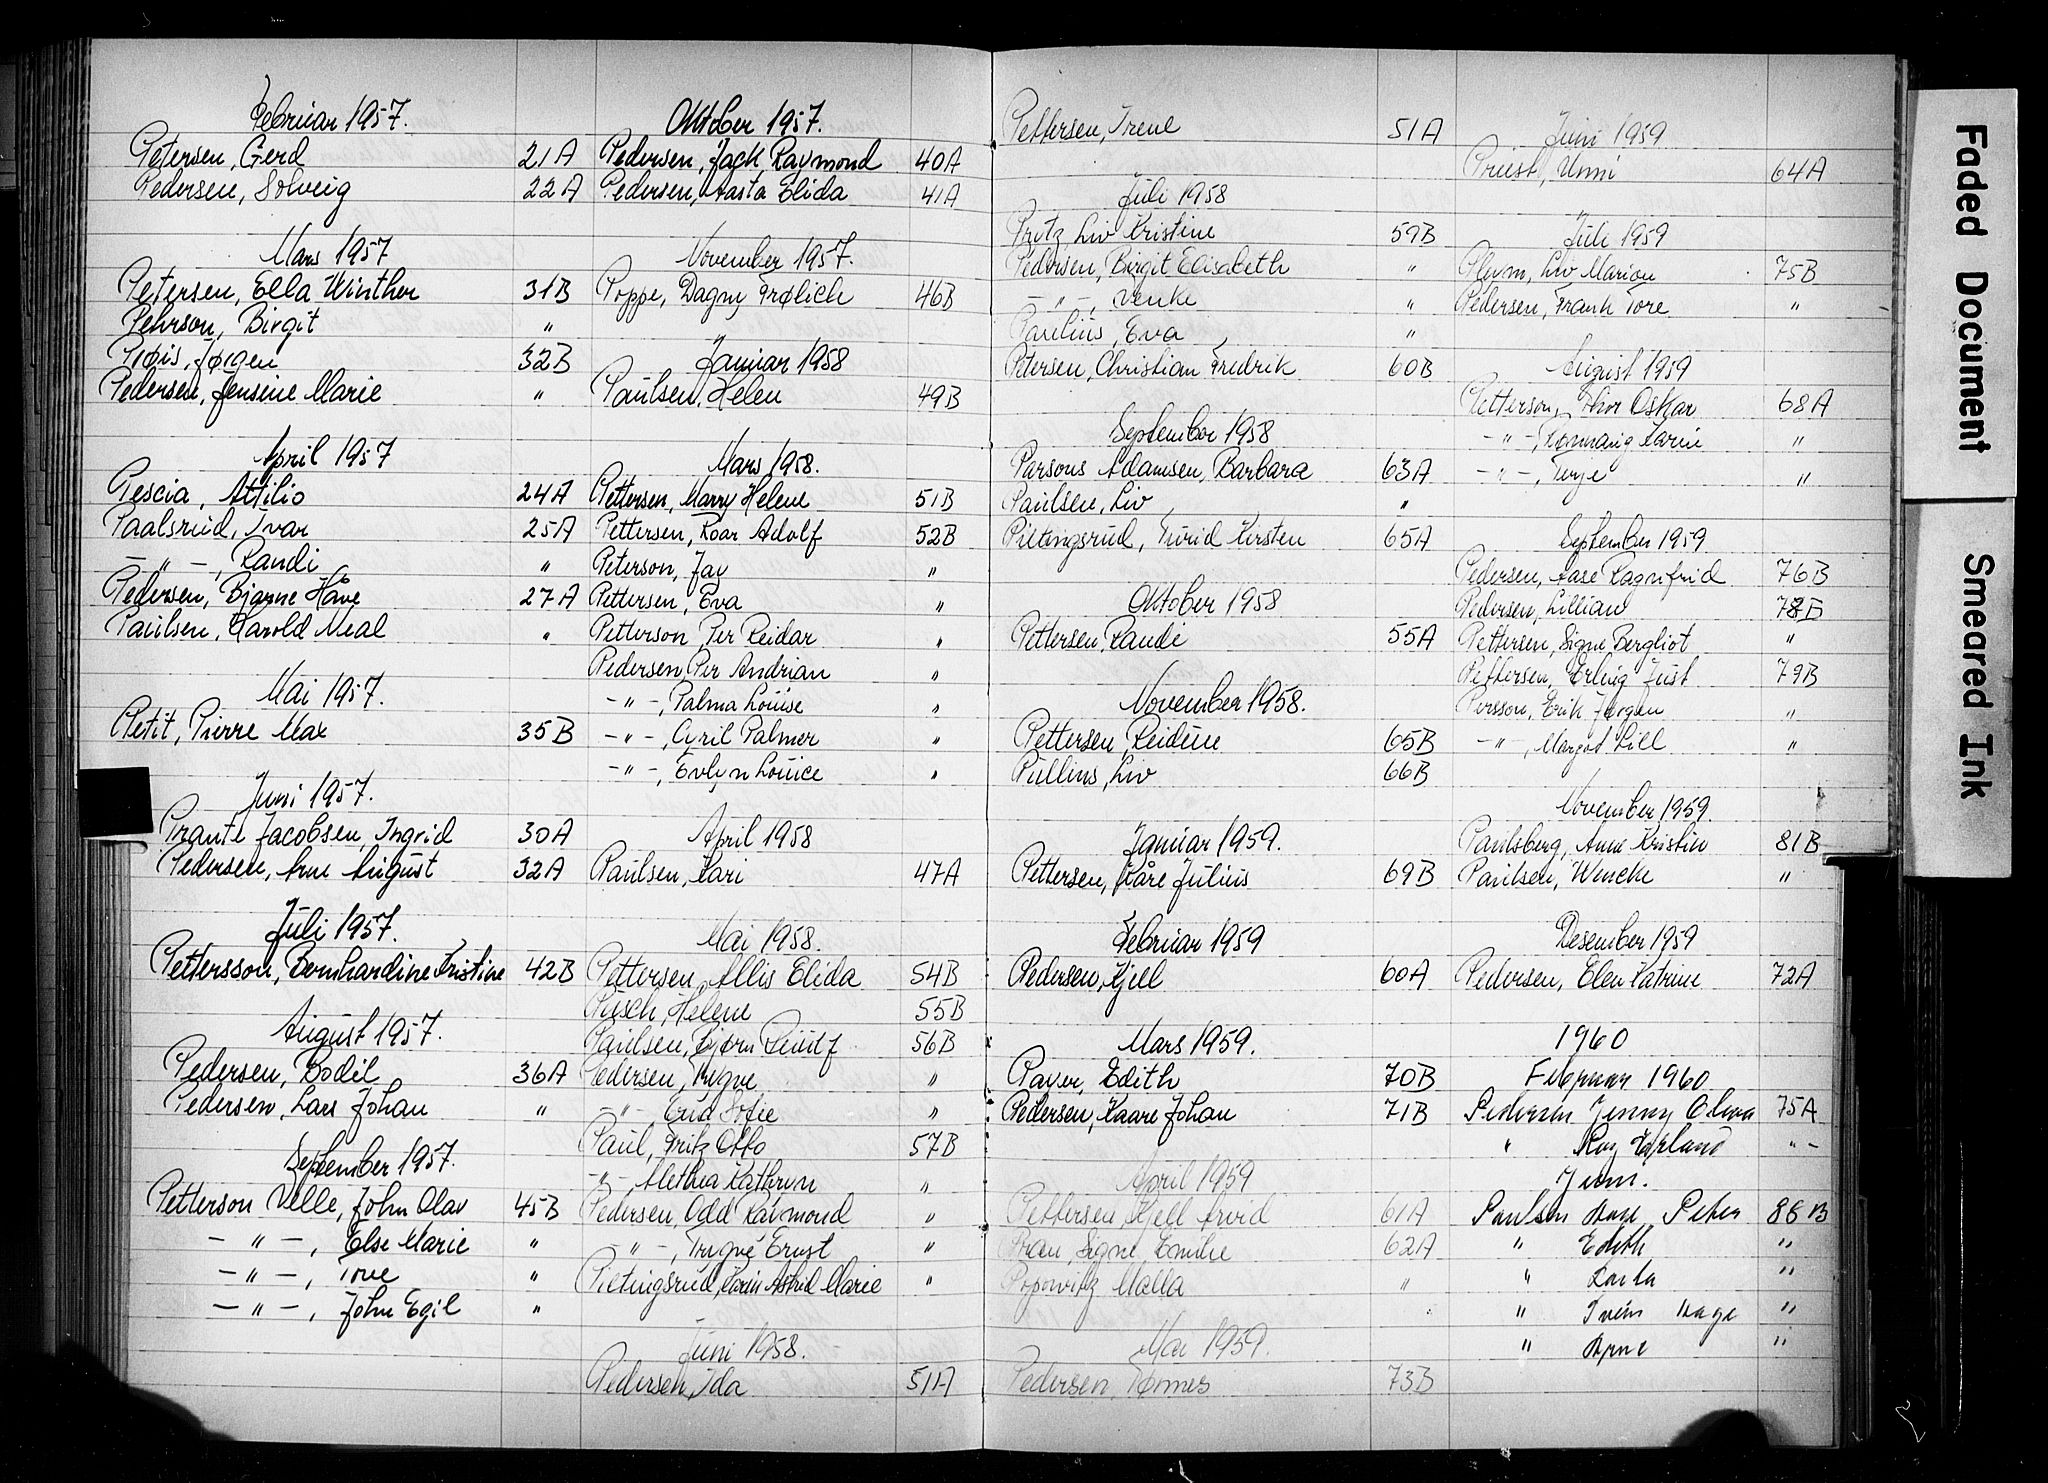 Februar 1957.
Petersen, Gerd 21A
Pedersen, Solveig 22A
Mars 1957
Petersen, Ella Winther 31B
Pehrson, Birgit "
Prøis, Jørgen 32B
Pedersen, Jensine Marie "
April 1957
Pescia, Attilio 24A
Paalsrud, Ivar 25A
— " —, Randi "
Pedersen, Bjarne Håve 27A
Paulsen, Harold Neal "
Mai 1957.
Petit, Pierre Max 35B
Juni 1957.
Prante Jacobsen, Ingrid 30A
Pedersen, Arne August 32A
Juli 1957.
Pettersson, Bernhardine Kristine 42B
August 1957.
Pedersen, Bodil 36A
Pedersen, Lars Johan "
September 1957.
Petterson Velle, John Olav 45B
— " —, Else Marie "
— " —, Tove "
— " —, John Egil "
Oktober 1957.
Pedersen, Jack Raymond 40A
Pedersen, Aasta Elida 41A
November 1957.
Poppe, Dagny Frølich 46B
Januar 1958
Paulsen, Helen 49B
Mars 1958.
Pettersen, Marry Helene 51B
Pettersen, Roar Adolf 52B
Peterson, Jay "
Pettersen, Eva "
Petterson, Per Reidar "
Pedersen, Per Andrian "
— " —, Palma Louise "
— " —, Cyril Palmer "
— " —, Evlyn Louice "
April 1958
Paulsen, Kari 47A
Mai 1958.
Pettersen, Allis Elida 54B
Pusch, Helene 55B
Paulsen, Bjørn 56B
Pedersen, Trygve "
— " — Sofie "
Paul, Fritz Otto 57B
— " —, Alethea Kathryn "
Pedersen, Odd Raymond "
— " —, Trygve Ernst "
Pietingsrud, Karin Astrid Marie "
Juni 1958.
Pedersen, Ida 51A
Pettersen, Irene 51A
Juli 1958
Pritz Liv Kristine 59B
Pedersen, Birgit Elisabeth "
— " —, Wenke "
Paulius, Eva "
Petersen, Christian Fredrik 60B
September 1958
Parsons Adamsen, Barbara 63A
Paulsen, Liv "
Pietingsrud, Turid Kirsten 65A
Oktober 1958
Pettersen, Randi 55A
November 1958.
Pettersen, Reidun 65B
Pullins, Liv 66B
Januar 1959.
Pettersen, Kåre Julius 69B
Februar 1959
Pedersen, Kjell 60A
Mars 1959.
Payer, Edith 70B
Pedersen, Kaare Johan 71B
April 1959
Pettersen, Kjell Arvid 61A
Prau, Signe Emilie 62A
Popowitz Malla "
Mai 1959.
Pedersen, Tønnes 73B
Juni 1959
Priest, Unni 64A
Juli 1959
Plum, Liv Marion 75B
Pedersen, Frank Tore "
August 1959
Petterson, Thor Oskar 68A
— " —, Karin "
— " —, Terje "
September 1959
Pedersen, Aase Ragnfrid 76B
Pedersen, Lillian 78B
Pettersen, Signe Bergliot "
Pettersen, Erling Just 79B
Persson, Erik Jørgen "
— " —, Margot Lill "
November 1959.
Paulsberg, Anne Kristin 81B
Paulsen, Wencke "
Desember 1959
Pedersen, Elen Katrine 72A
1960
Februar 1960
Pedersen Jenny Oliva 75A
" Roy Erland " -
Juni.
Paulsen Peter 86B
" Edith "
" "
" Svein Hage "
" Arne "
Faded Document
Smeared Ink